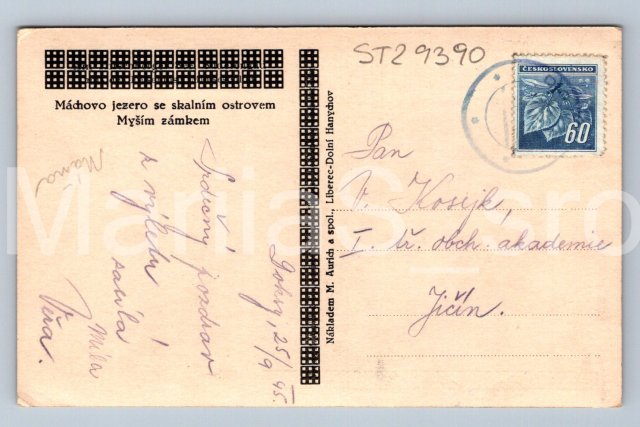 ST29390
ČESKOSLOVENSKO
60
Máchovo jezero se skalním ostrovem
Myším zámkem
Nákladem M. Aurich a spol., Liberec-Dolní Hanychov
Doksy, 25/9 45.
Srdečný pozdrav
z výletu
Věra.
Míla
Máma
Pan
V. Kosejk,
I. tř. obch. akademie
Jičín.
ManiaS_sro